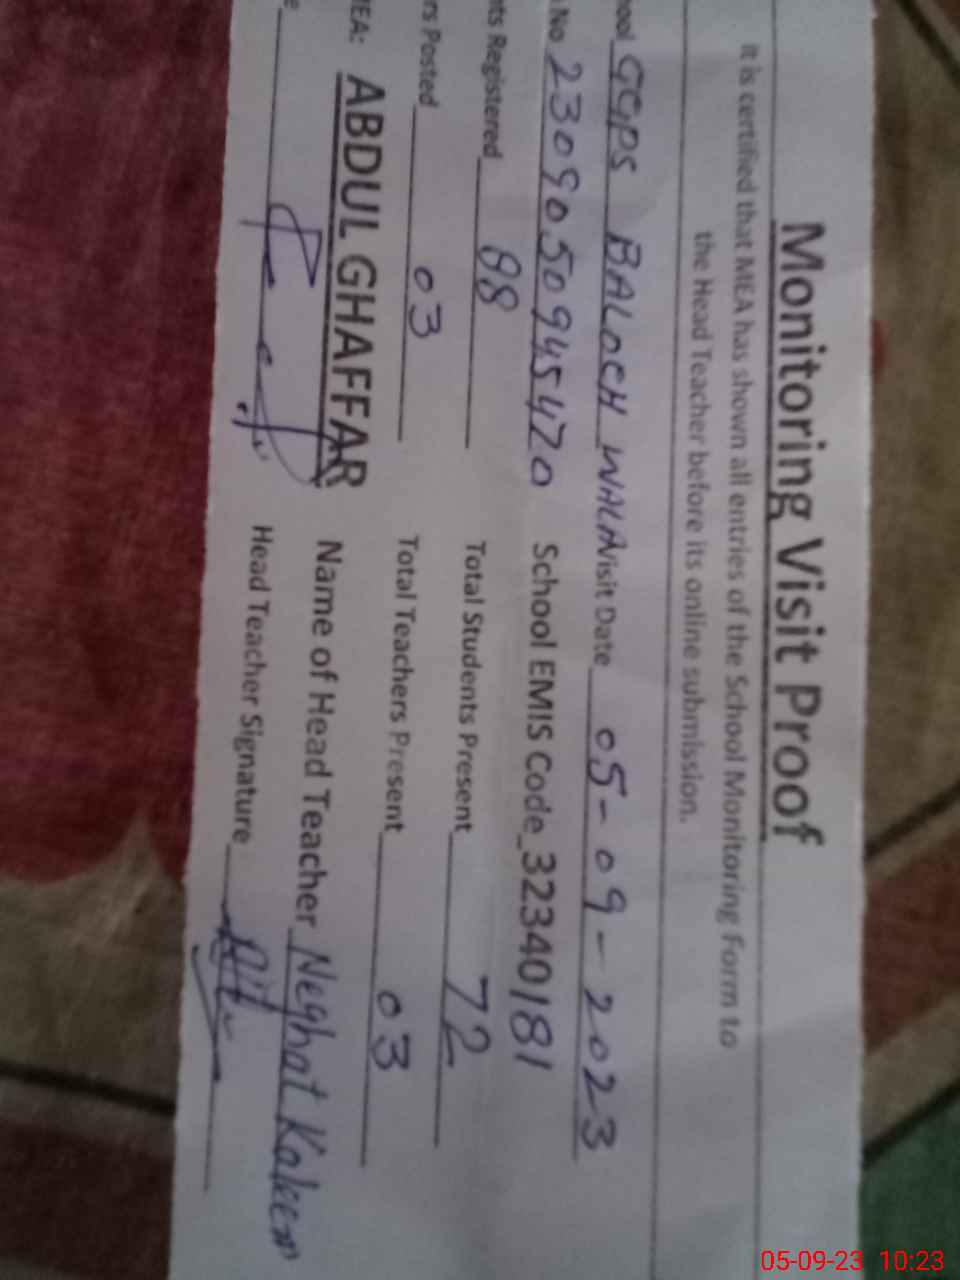 Monitoring Visit Proof
It is certified that MEA has shown all entries of the School Monitoring Form to
the Head Teacher before its online submission.
ool GGPS BALOCH WALA Visit Date 05-09-2023
No 2309050945470 School EMIS Code 32340181
nts Registered 88 Total Students Present 72
rs Posted 03 Total Teachers Present 03
MEA: ABDUL GHAFFAR Name of Head Teacher Neghat Kaleem
e Head Teacher Signature
05-09-23 10:23